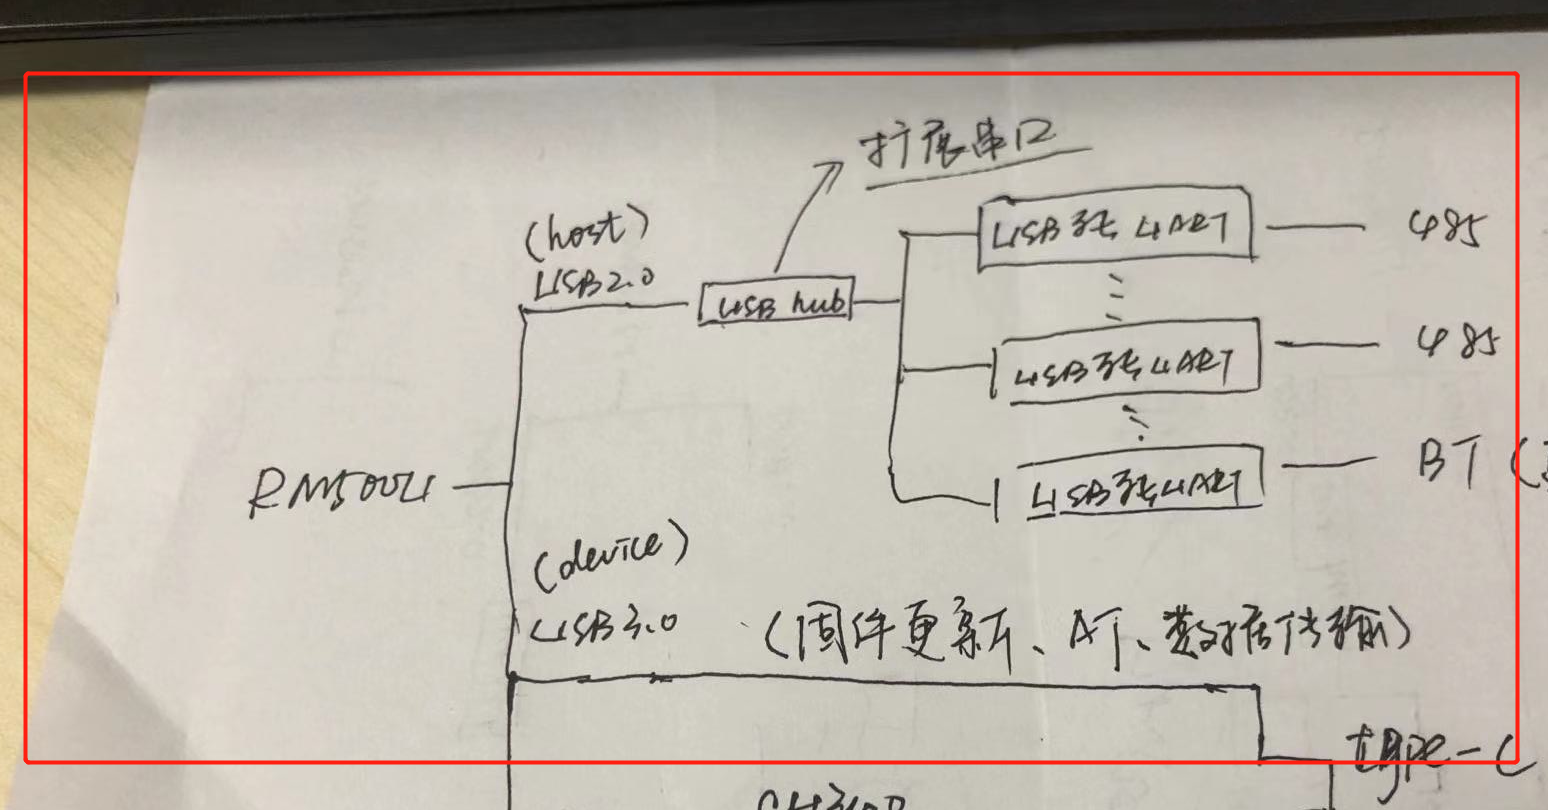 扩展串口
(host)
USB2.0
USB hub
USB转UART
485
USB转UART
485
USB转UART
BT
RM500U
(device)
USB3.0
(固件更新、AT、数据传输)
type-C